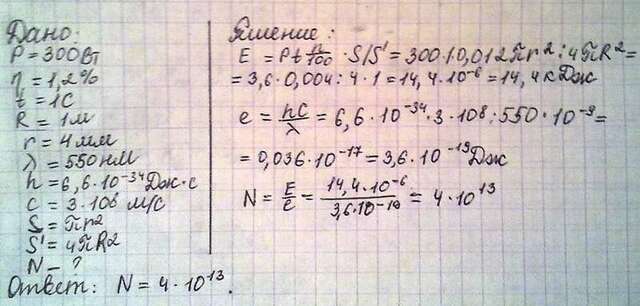 Дано:
P = 300 Вт
η = 1,2 %
t = 1 С
R = 1 м
r = 4 мм
λ = 550 нм
h = 6,6·10⁻³⁴ Дж·с
c = 3·10⁸ м/с
S = πr²
S' = 4πR²
N – ?
Решение:
E = Pt η/100 · S/S' = 300·1·0,012πr² : 4πR² =
= 3,6·0,004 : 4·1 = 14,4·10⁻⁶ = 14,4 кДж
e = hc/λ = 6,6·10⁻³⁴·3·10⁸ : 550·10⁻⁹ =
= 0,036·10⁻¹⁷ = 3,6·10⁻¹⁹ Дж
N = E/e = 14,4·10⁻⁶/3,6·10⁻¹⁹ = 4·10¹³
Ответ: N = 4·10¹³.